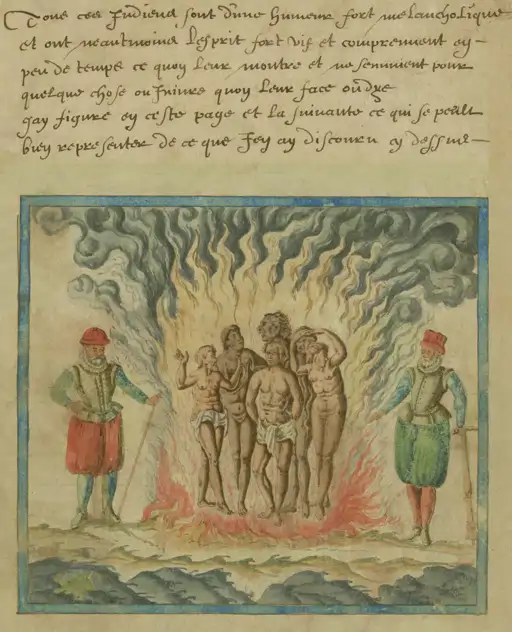 Tous ces Indiens sont d'une humeur fort melancholique
et ont neautmoins l'esprit fort vif et comprennent en
peu de temps ce quon leur monstre et ne sennuient pour
quelque chose ou Iniure quon leur face ou dye
Iay figuré en ceste page et la suivante ce qui se peult
bien representer de ce que Jen ay discouru cy dessus